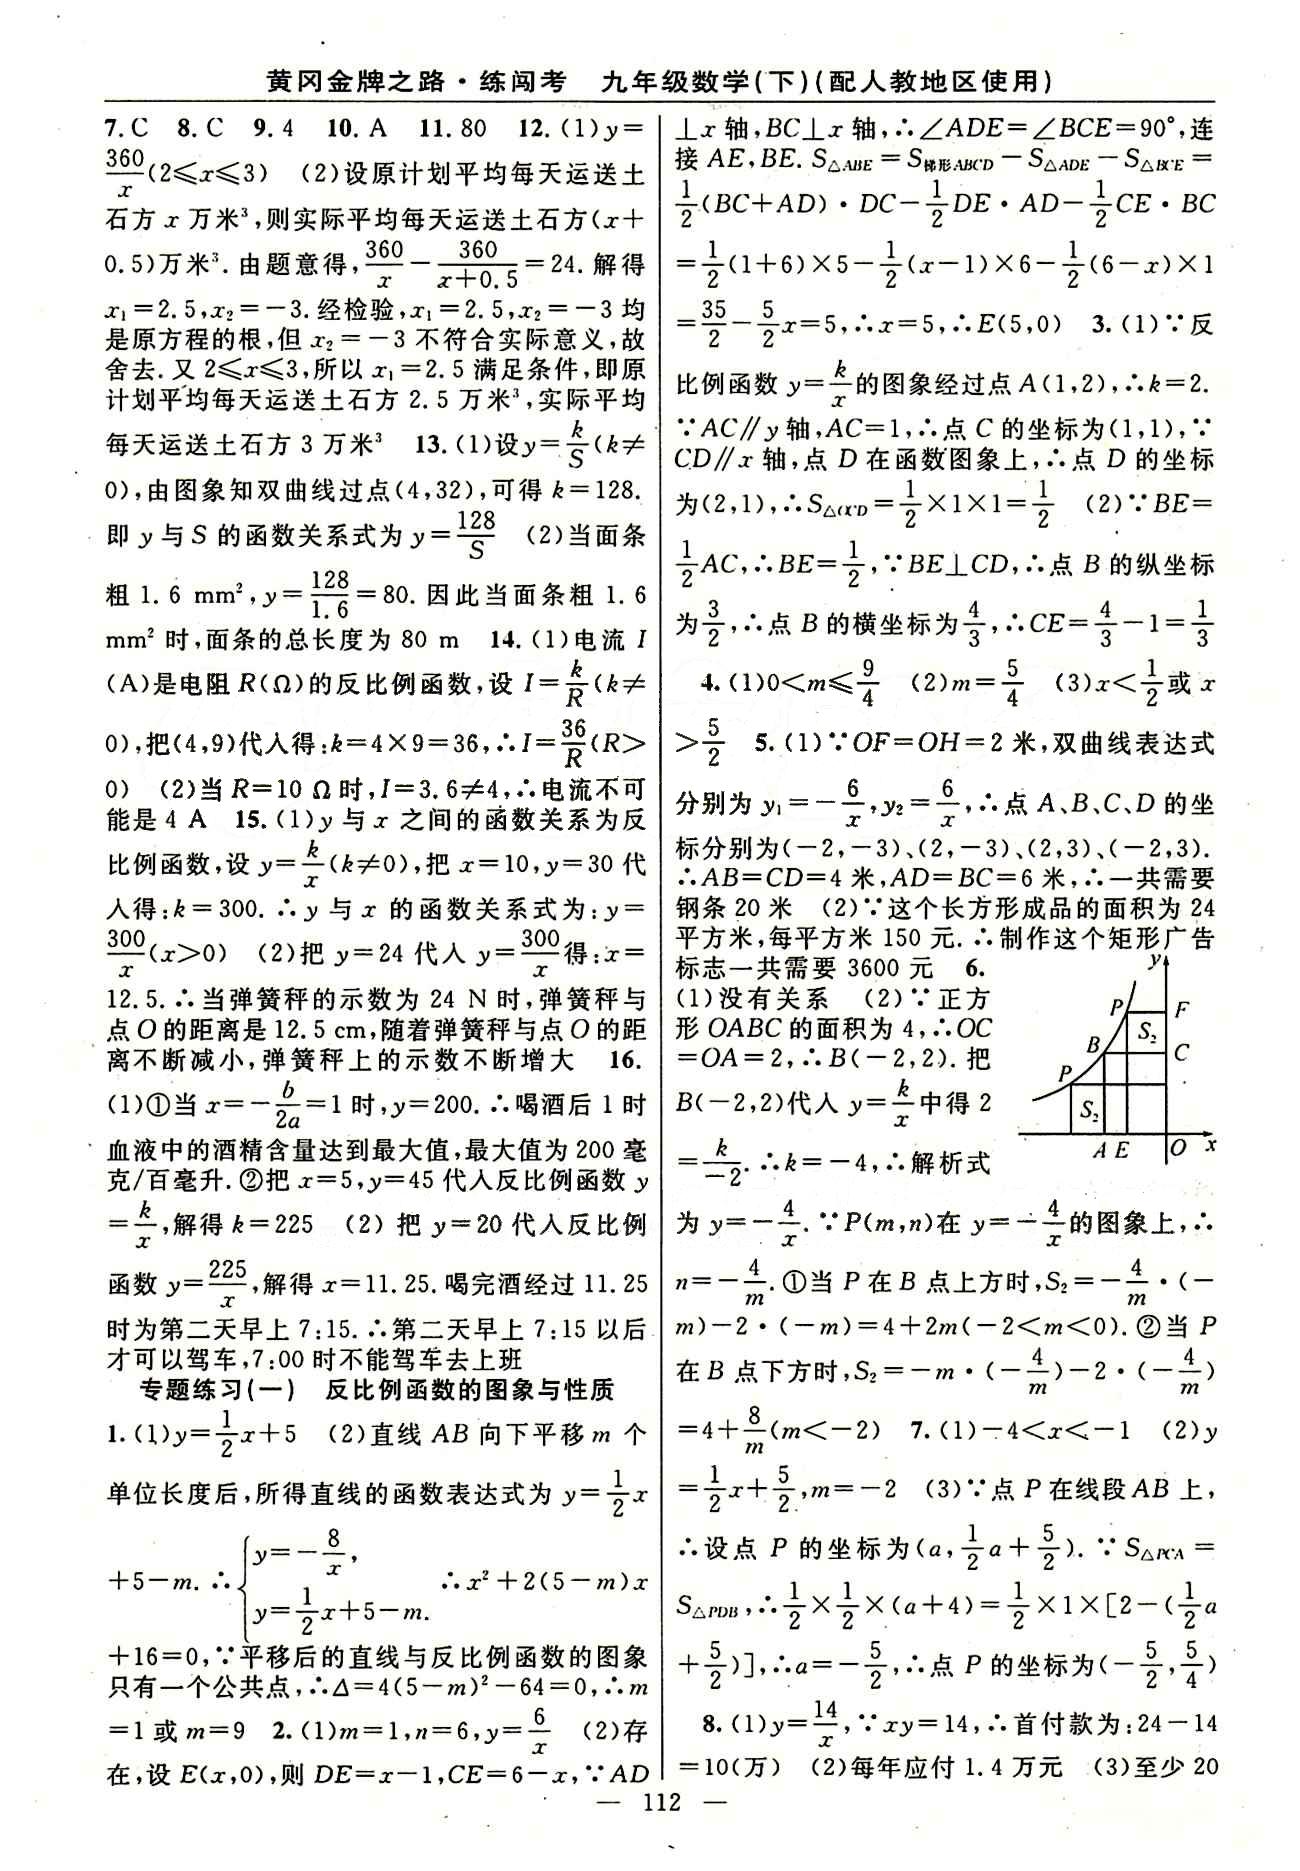 黄冈金牌之路·练闯考　九年级数学(下)(配人教地区使用)
7.C　8.C　9.4　10.A　11.80　12.(1)y=
360/x(2⩽x⩽3)　(2)设原计划平均每天运送土
石方 x 万米³,则实际平均每天运送土石方(x+
0.5)万米³.由题意得,360/x−360/(x+0.5)=24.解得
x₁=2.5,x₂=−3.经检验,x₁=2.5,x₂=−3 均
是原方程的根,但 x₂=−3 不符合实际意义,故
舍去.又 2⩽x⩽3,所以 x₁=2.5 满足条件,即原
计划平均每天运送土石方 2.5 万米³,实际平均
每天运送土石方 3 万米³　13.(1)设y=k/S(k≠
0),由图象知双曲线过点(4,32),可得 k=128.
即 y 与 S 的函数关系式为 y=128/S　(2)当面条
粗 1.6 mm²,y=128/1.6=80.因此当面条粗 1.6
mm² 时,面条的总长度为 80 m　14.(1)电流 I
(A)是电阻 R(Ω)的反比例函数,设 I=k/R(k≠
0),把(4,9)代入得:k=4×9=36,∴I=36/R(R>
0)　(2)当 R=10 Ω 时,I=3.6≠4,∴电流不可
能是 4 A　15.(1)y 与 x 之间的函数关系为反
比例函数,设 y=k/x(k≠0),把 x=10,y=30 代
入得:k=300.∴y 与 x 的函数关系式为:y=
300/x(x>0)　(2)把 y=24 代入 y=300/x得:x=
12.5.∴当弹簧秤的示数为 24 N 时,弹簧秤与
点 O 的距离是 12.5 cm,随着弹簧秤与点 O 的距
离不断减小,弹簧秤上的示数不断增大　16.
(1)①当 x=−b/2a=1 时,y=200.∴喝酒后 1 时
血液中的酒精含量达到最大值,最大值为 200 毫
克/百毫升.②把 x=5,y=45 代入反比例函数 y
=k/x,解得 k=225　(2) 把 y=20 代入反比例
函数 y=225/x,解得 x=11.25.喝完酒经过 11.25
时为第二天早上 7:15.∴第二天早上 7:15 以后
才可以驾车,7:00 时不能驾车去上班
专题练习(一)　反比例函数的图象与性质
1.(1)y=1/2x+5　(2)直线 AB 向下平移 m 个
单位长度后,所得直线的函数表达式为 y=1/2x
+5−m.∴{y=−8/x, y=1/2x+5−m.　∴x²+2(5−m)x
+16=0,∵平移后的直线与反比例函数的图象
只有一个公共点,∴Δ=4(5−m)²−64=0,∴m
=1 或 m=9　2.(1)m=1,n=6,y=6/x　(2)存
在,设 E(x,0),则 DE=x−1,CE=6−x,∵AD
⊥x 轴,BC⊥x 轴,∴∠ADE=∠BCE=90°,连
接 AE,BE.S△ABE=S梯形ABCD−S△ADE−S△BCE=
1/2(BC+AD)·DC−1/2DE·AD−1/2CE·BC
=1/2(1+6)×5−1/2(x−1)×6−1/2(6−x)×1
=35/2−5/2x=5,∴x=5,∴E(5,0)　3.(1)∵反
比例函数 y=k/x的图象经过点 A(1,2),∴k=2.
∵AC∥y 轴,AC=1,∴点 C 的坐标为(1,1),∵
CD∥x 轴,点 D 在函数图象上,∴点 D 的坐标
为(2,1),∴S△OCD=1/2×1×1=1/2　(2)∵BE=
1/2AC,∴BE=1/2,∵BE⊥CD,∴点 B 的纵坐标
为3/2,∴点 B 的横坐标为4/3,∴CE=4/3−1=1/3
4.(1)0<m⩽9/4　(2)m=5/4　(3)x<1/2或 x
>5/2　5.(1)∵OF=OH=2 米,双曲线表达式
分别为 y₁=−6/x,y₂=6/x,∴点 A、B、C、D 的坐
标分别为(−2,−3)、(2,−3)、(2,3)、(−2,3).
∴AB=CD=4 米,AD=BC=6 米,∴一共需要
钢条 20 米　(2)∵这个长方形成品的面积为 24
平方米,每平方米 150 元.∴制作这个矩形广告
标志一共需要 3600 元　6.
(1)没有关系　(2)∵正方
形 OABC 的面积为 4,∴OC
=OA=2,∴B(−2,2).把
B(−2,2)代入 y=k/x中得 2
=k/−2.∴k=−4,∴解析式
y
P
F
S₂
B
C
P
S₂
A E O x
为 y=−4/x.∵P(m,n)在 y=−4/x的图象上,∴
n=−4/m.①当 P 在 B 点上方时,S₂=−4/m·(−
m)−2·(−m)=4+2m(−2<m<0).②当 P
在 B 点下方时,S₂=−m·(−4/m)−2·(−4/m)
=4+8/m(m<−2)　7.(1)−4<x<−1　(2)y
=1/2x+5/2,m=−2　(3)∵点 P 在线段 AB 上,
∴设点 P 的坐标为(a,1/2a+5/2).∵S△PCA=
S△PDB,∴1/2×1/2×(a+4)=1/2×1×[2−(1/2a
+5/2)],∴a=−5/2,∴点 P 的坐标为(−5/2,5/4)
8.(1)y=14/x,∵xy=14,∴首付款为:24−14
=10(万)　(2)每年应付 1.4 万元　(3)至少 20
— 112 —